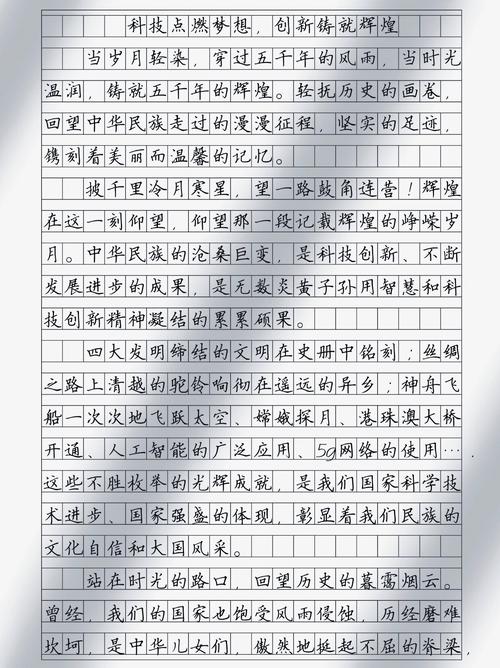 科技点燃梦想，创新铸就辉煌
当岁月轻染，穿过五千年的风雨，当时光
温润，铸就五千年的辉煌。轻抚历史的画卷，
回望中华民族走过的漫漫征程，坚实的足迹，
镌刻着美丽而温馨的记忆。
披千里冷月寒星，望一路鼓角连营！辉煌
在这一刻仰望，仰望那一段记载辉煌的峥嵘岁
月。中华民族的沧桑巨变，是科技创新、不断
发展进步的成果，是无数炎黄子孙用智慧和科
技创新精神凝结的累累硕果。
四大发明缔结的文明在史册中铭刻；丝绸
之路上清越的驼铃响彻在遥远的异乡；神舟飞
船一次次地飞跃太空、嫦娥探月、港珠澳大桥
开通、人工智能的广泛应用、5g网络的使用…，
这些不胜枚举的光辉成就，是我们国家科学技
术进步、国家强盛的体现，彰显着我们民族的
文化自信和大国风采。
站在时光的路口，回望历史的暮霭烟云。
曾经，我们的国家也饱受风雨侵蚀，历经磨难
坎坷，是中华儿女们，傲然地挺起不屈的脊梁，